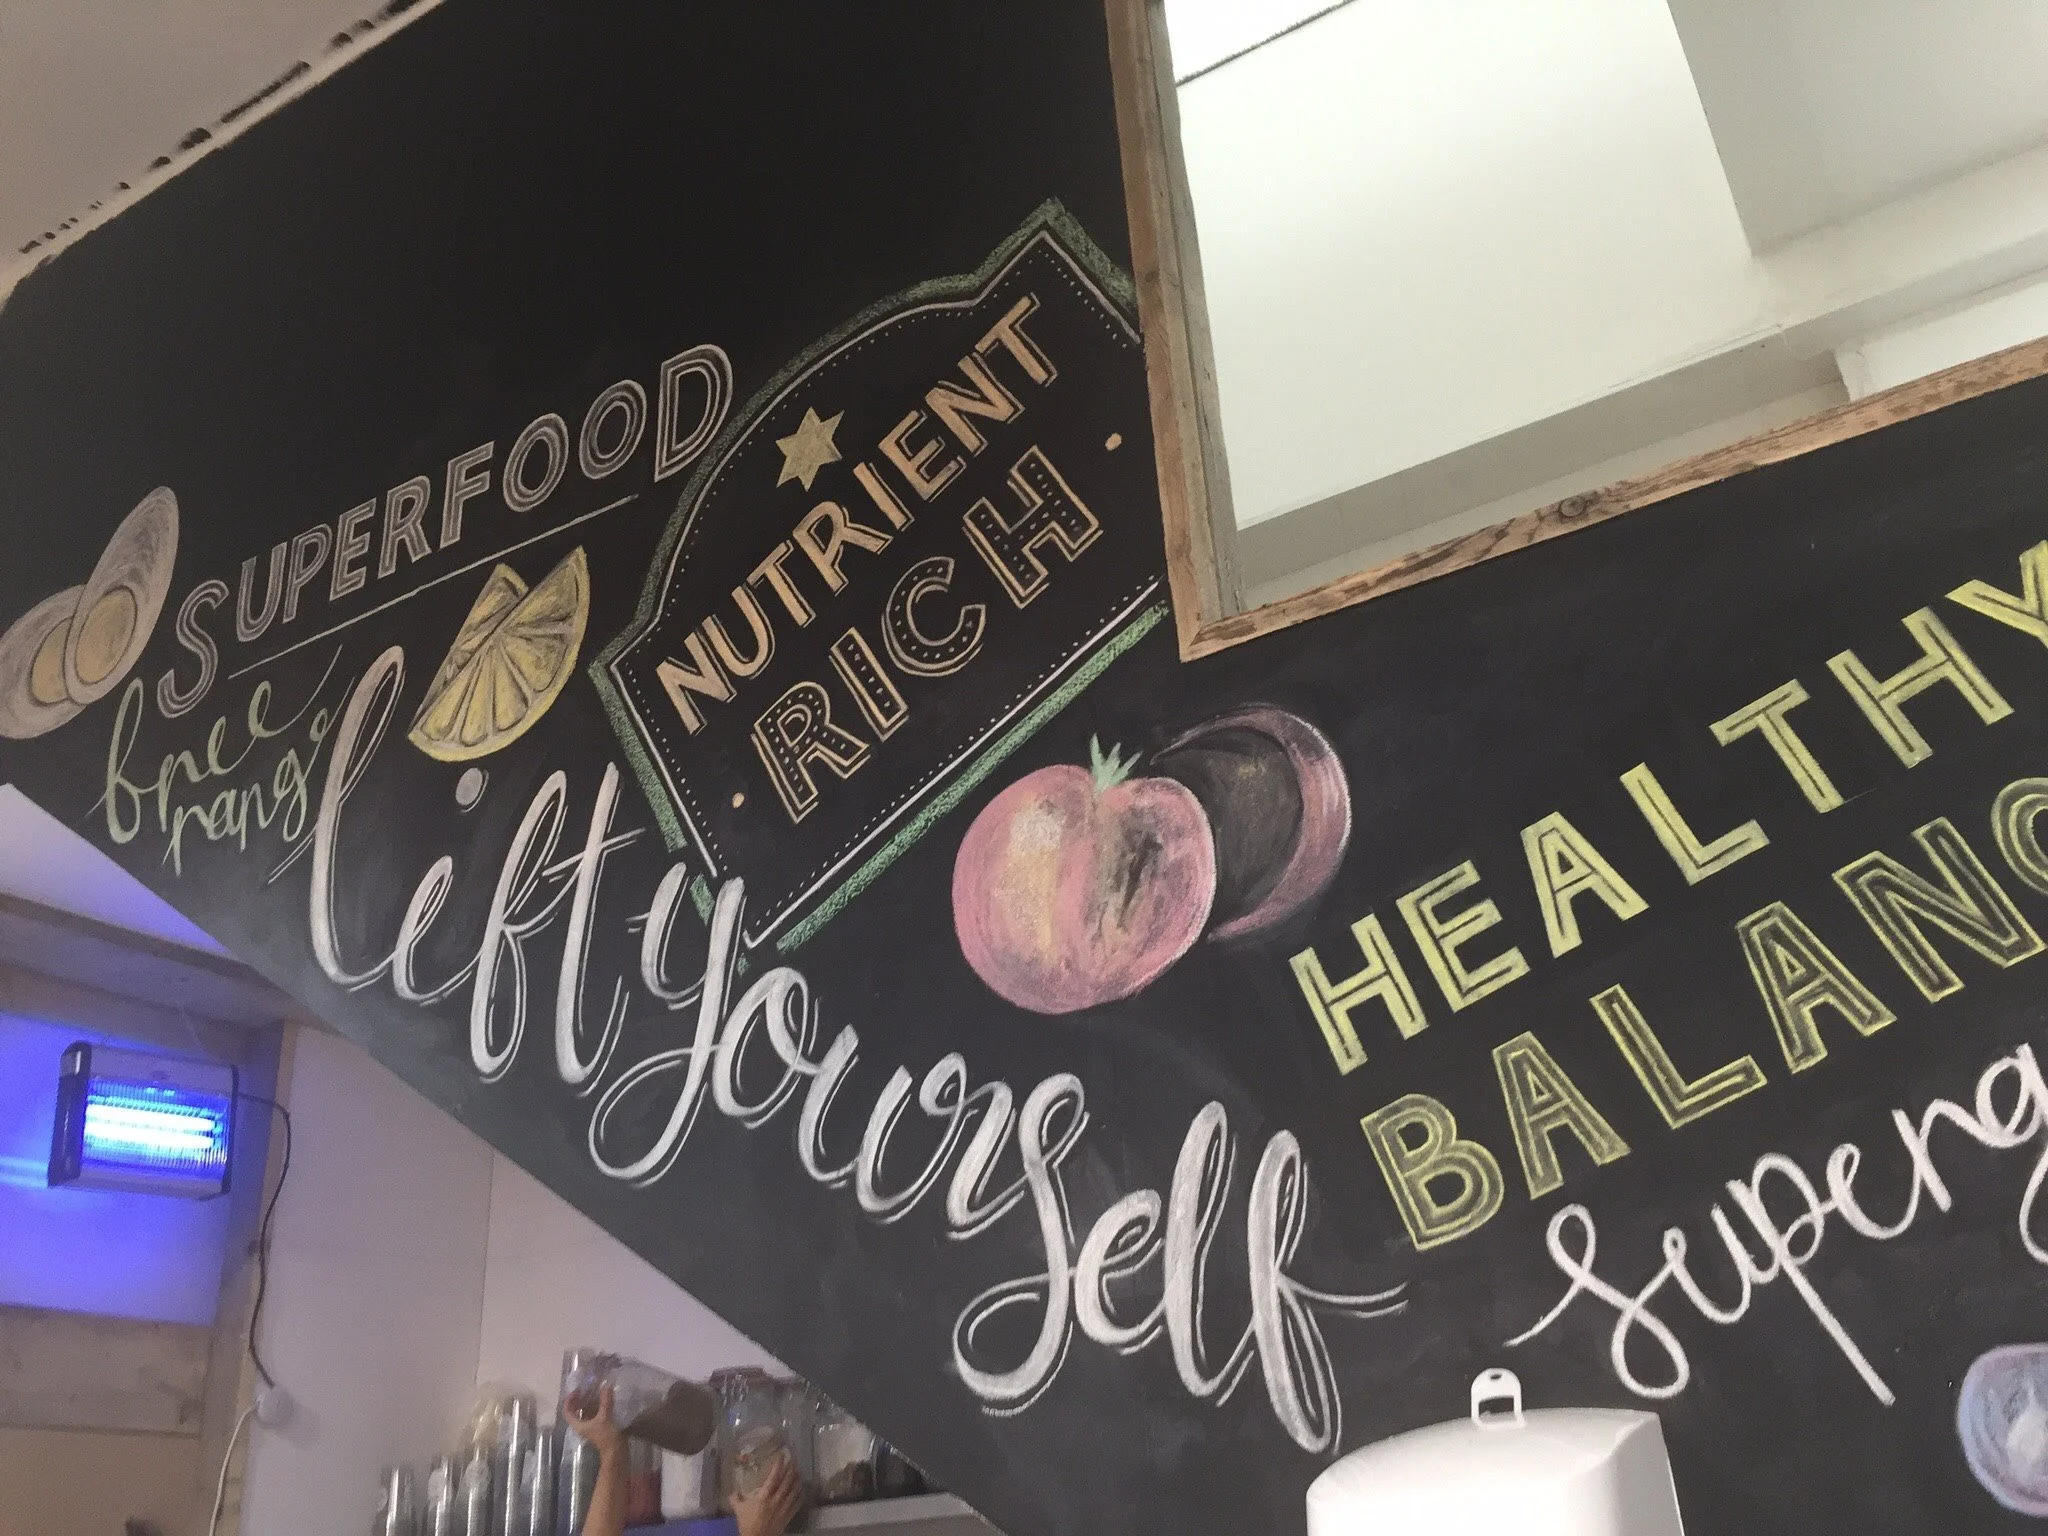 SUPERFOOD
free
range
NUTRIENT
RICH
lift yourself
HEALTHY
BALANC
superg